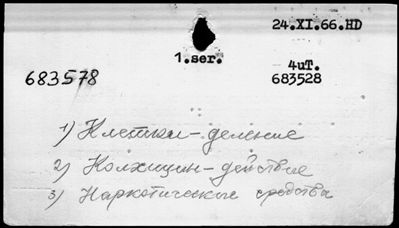 24.XI.66.HD
1.ser.
4uT.
683578
683528
1) Клетки-деление
2) Колхицин-действие
3) Наркотические средства